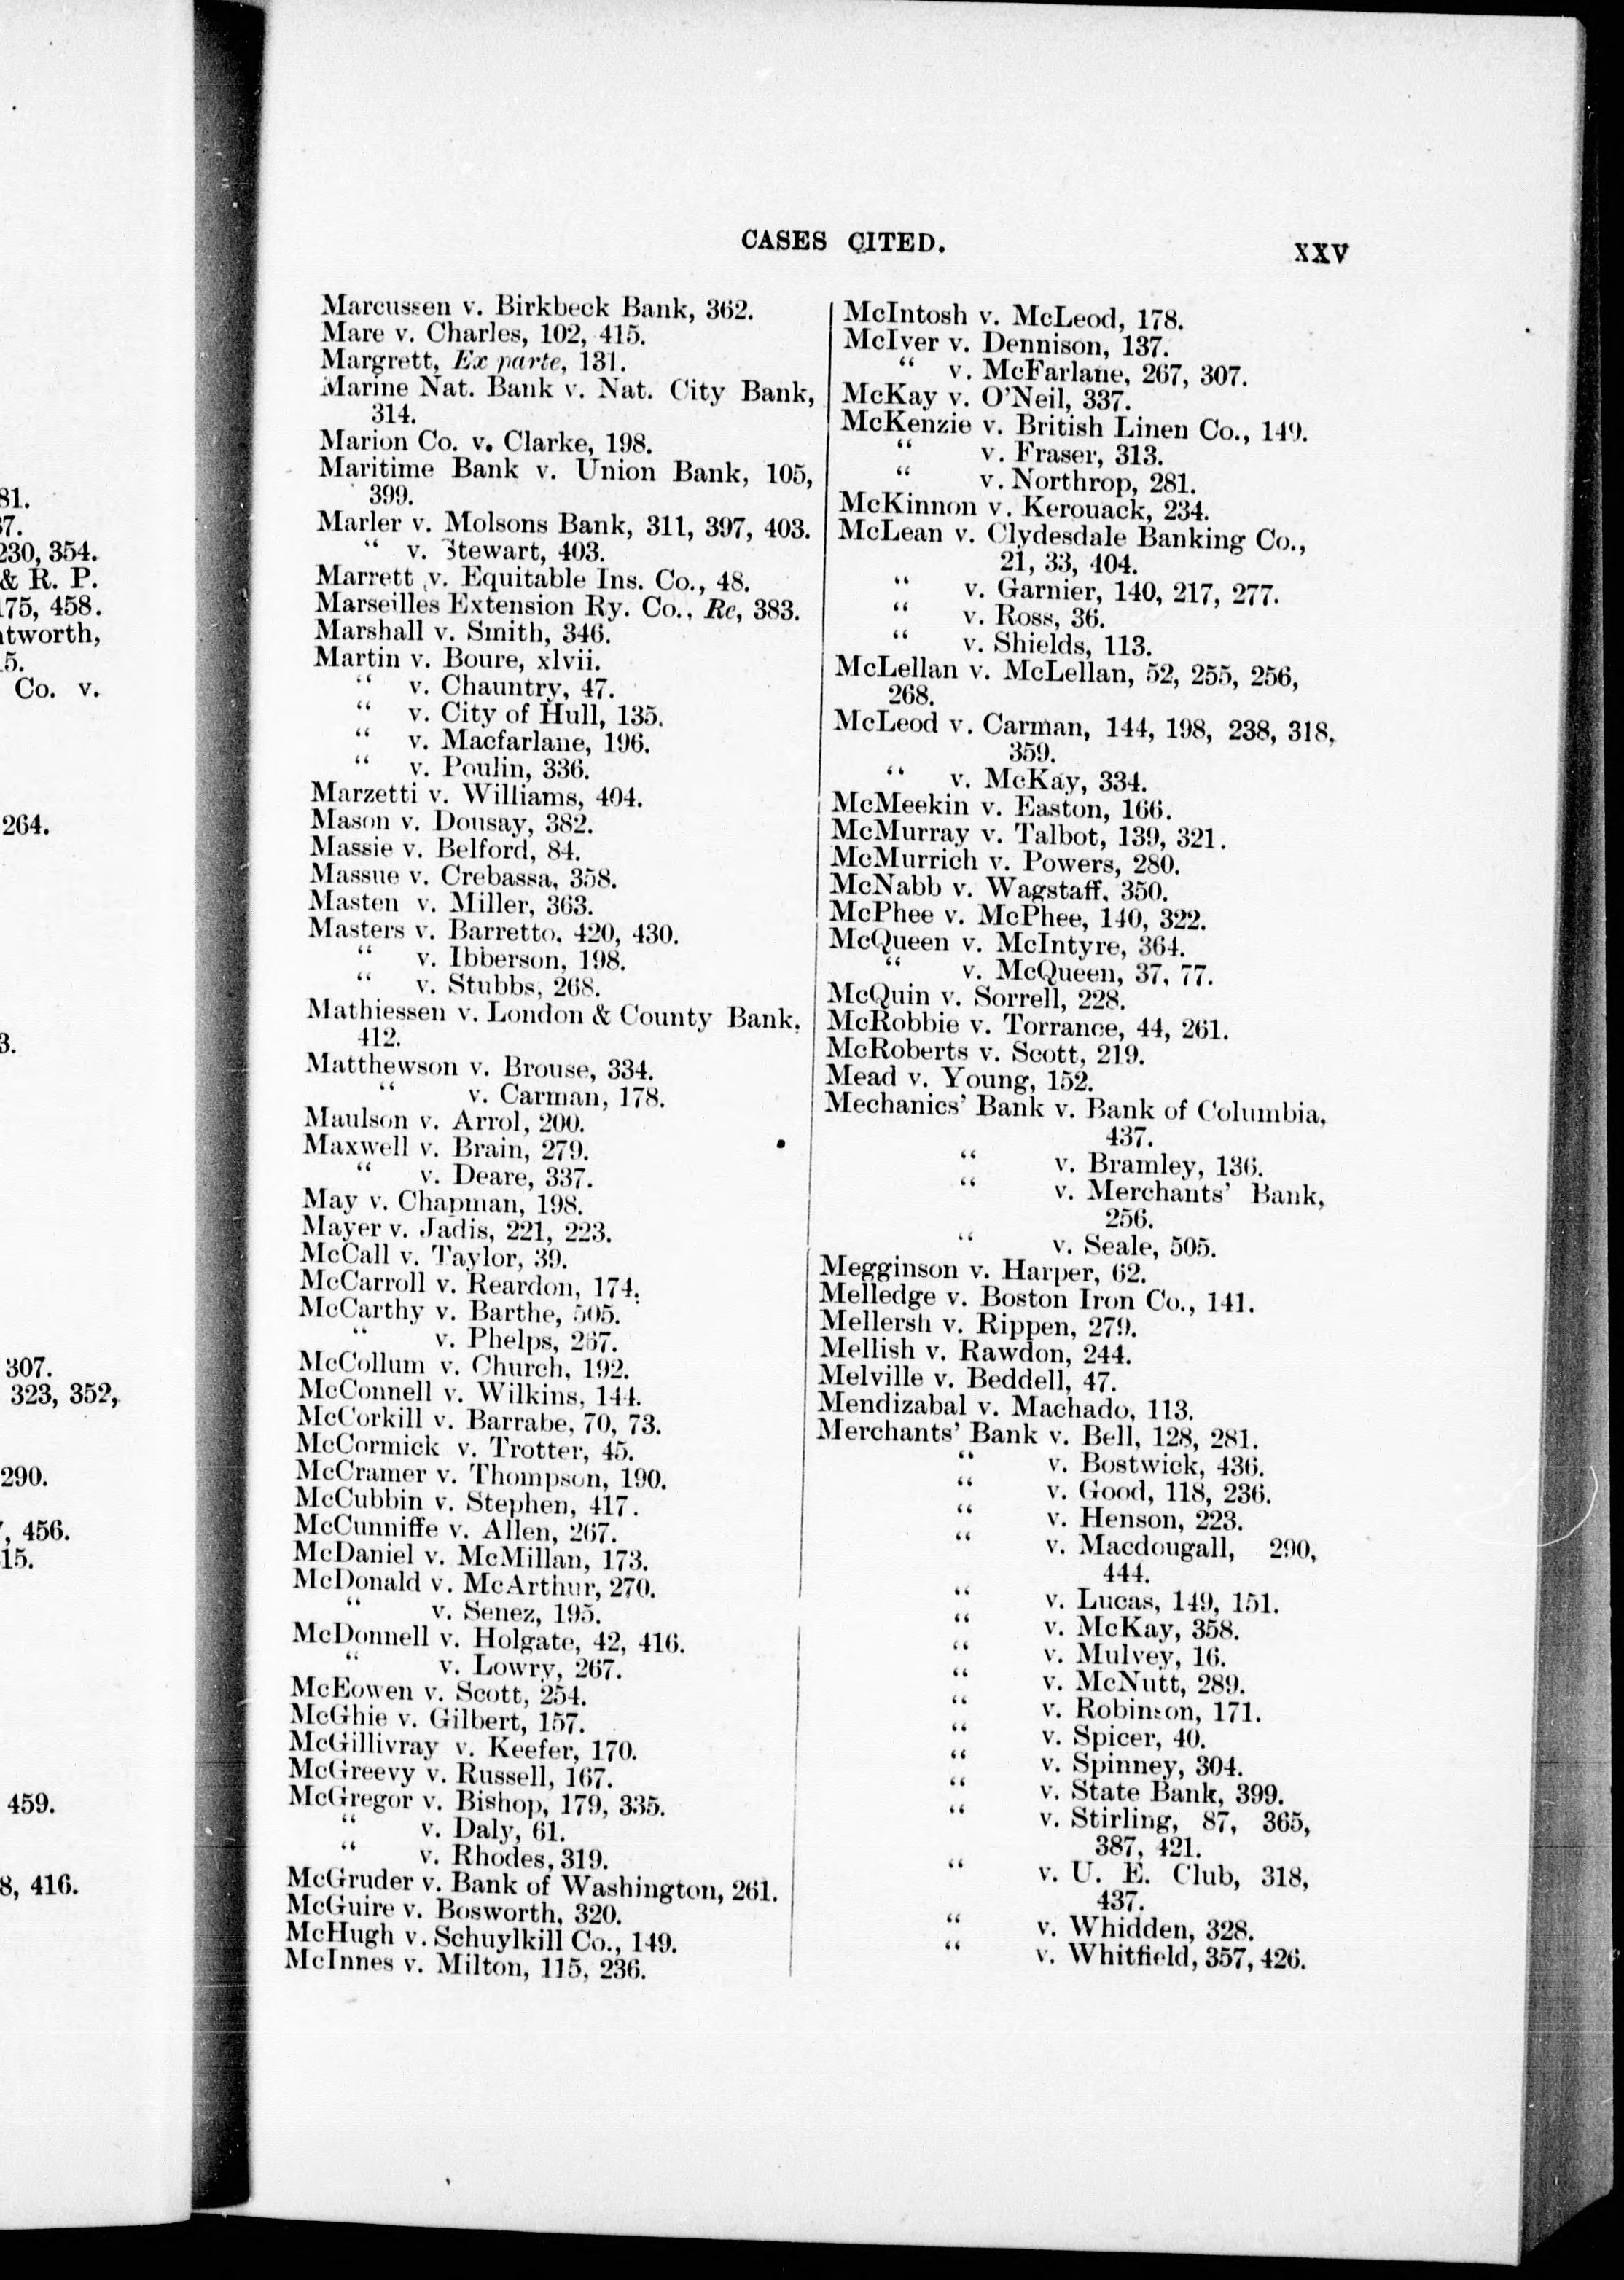 81.
37.
230, 354.
& R. P.
175, 458.
tworth,
5.
Co. v.
264.
3.
307.
323, 352,
290.
, 456.
15.
459.
8, 416.
CASES CITED.
XXV
Marcussen v. Birkbeck Bank, 362.
Mare v. Charles, 102, 415.
Margrett, Ex parte, 131.
Marine Nat. Bank v. Nat. City Bank,
314.
Marion Co. v. Clarke, 198.
Maritime Bank v. Union Bank, 105,
399.
Marler v. Molsons Bank, 311, 397, 403.
“ v. Stewart, 403.
Marrett v. Equitable Ins. Co., 48.
Marseilles Extension Ry. Co., Re, 383.
Marshall v. Smith, 346.
Martin v. Boure, xlvii.
“ v. Chauntry, 47.
“ v. City of Hull, 135.
“ v. Macfarlane, 196.
“ v. Poulin, 336.
Marzetti v. Williams, 404.
Mason v. Dousay, 382.
Massie v. Belford, 84.
Massue v. Crebassa, 358.
Masten v. Miller, 363.
Masters v. Barretto, 420, 430.
“ v. Ibberson, 198.
“ v. Stubbs, 268.
Mathiessen v. London & County Bank,
412.
Matthewson v. Brouse, 334.
“ v. Carman, 178.
Maulson v. Arrol, 200.
Maxwell v. Brain, 279.
“ v. Deare, 337.
May v. Chapman, 198.
Mayer v. Jadis, 221, 223.
McCall v. Taylor, 39.
McCarroll v. Reardon, 174.
McCarthy v. Barthe, 505.
“ v. Phelps, 267.
McCollum v. Church, 192.
McConnell v. Wilkins, 144.
McCorkill v. Barrabe, 70, 73.
McCormick v. Trotter, 45.
McCramer v. Thompson, 190.
McCubbin v. Stephen, 417.
McCunniffe v. Allen, 267.
McDaniel v. McMillan, 173.
McDonald v. McArthur, 270.
“ v. Senez, 195.
McDonnell v. Holgate, 42, 416.
“ v. Lowry, 267.
McEowen v. Scott, 254.
McGhie v. Gilbert, 157.
McGillivray v. Keefer, 170.
McGreevy v. Russell, 167.
McGregor v. Bishop, 179, 335.
“ v. Daly, 61.
“ v. Rhodes, 319.
McGruder v. Bank of Washington, 261.
McGuire v. Bosworth, 320.
McHugh v. Schuylkill Co., 149.
McInnes v. Milton, 115, 236.
McIntosh v. McLeod, 178.
McIver v. Dennison, 137.
“ v. McFarlane, 267, 307.
McKay v. O'Neil, 337.
McKenzie v. British Linen Co., 149.
“ v. Fraser, 313.
“ v. Northrop, 281.
McKinnon v. Kerouack, 234.
McLean v. Clydesdale Banking Co.,
21, 33, 404.
“ v. Garnier, 140, 217, 277.
“ v. Ross, 36.
“ v. Shields, 113.
McLellan v. McLellan, 52, 255, 256,
268.
McLeod v. Carman, 144, 198, 238, 318,
359.
“ v. McKay, 334.
McMeekin v. Easton, 166.
McMurray v. Talbot, 139, 321.
McMurrich v. Powers, 280.
McNabb v. Wagstaff, 350.
McPhee v. McPhee, 140, 322.
McQueen v. McIntyre, 364.
“ v. McQueen, 37, 77.
McQuin v. Sorrell, 228.
McRobbie v. Torrance, 44, 261.
McRoberts v. Scott, 219.
Mead v. Young, 152.
Mechanics' Bank v. Bank of Columbia,
437.
“ v. Bramley, 136.
“ v. Merchants' Bank,
256.
“ v. Seale, 505.
Megginson v. Harper, 62.
Melledge v. Boston Iron Co., 141.
Mellersh v. Rippen, 279.
Mellish v. Rawdon, 244.
Melville v. Beddell, 47.
Mendizabal v. Machado, 113.
Merchants' Bank v. Bell, 128, 281.
“ v. Bostwick, 436.
“ v. Good, 118, 236.
“ v. Henson, 223.
“ v. Macdougall, 290,
444.
“ v. Lucas, 149, 151.
“ v. McKay, 358.
“ v. Mulvey, 16.
“ v. McNutt, 289.
“ v. Robinson, 171.
“ v. Spicer, 40.
“ v. Spinney, 304.
“ v. State Bank, 399.
“ v. Stirling, 87, 365,
387, 421.
“ v. U. E. Club, 318,
437.
“ v. Whidden, 328.
“ v. Whitfield, 357, 426.